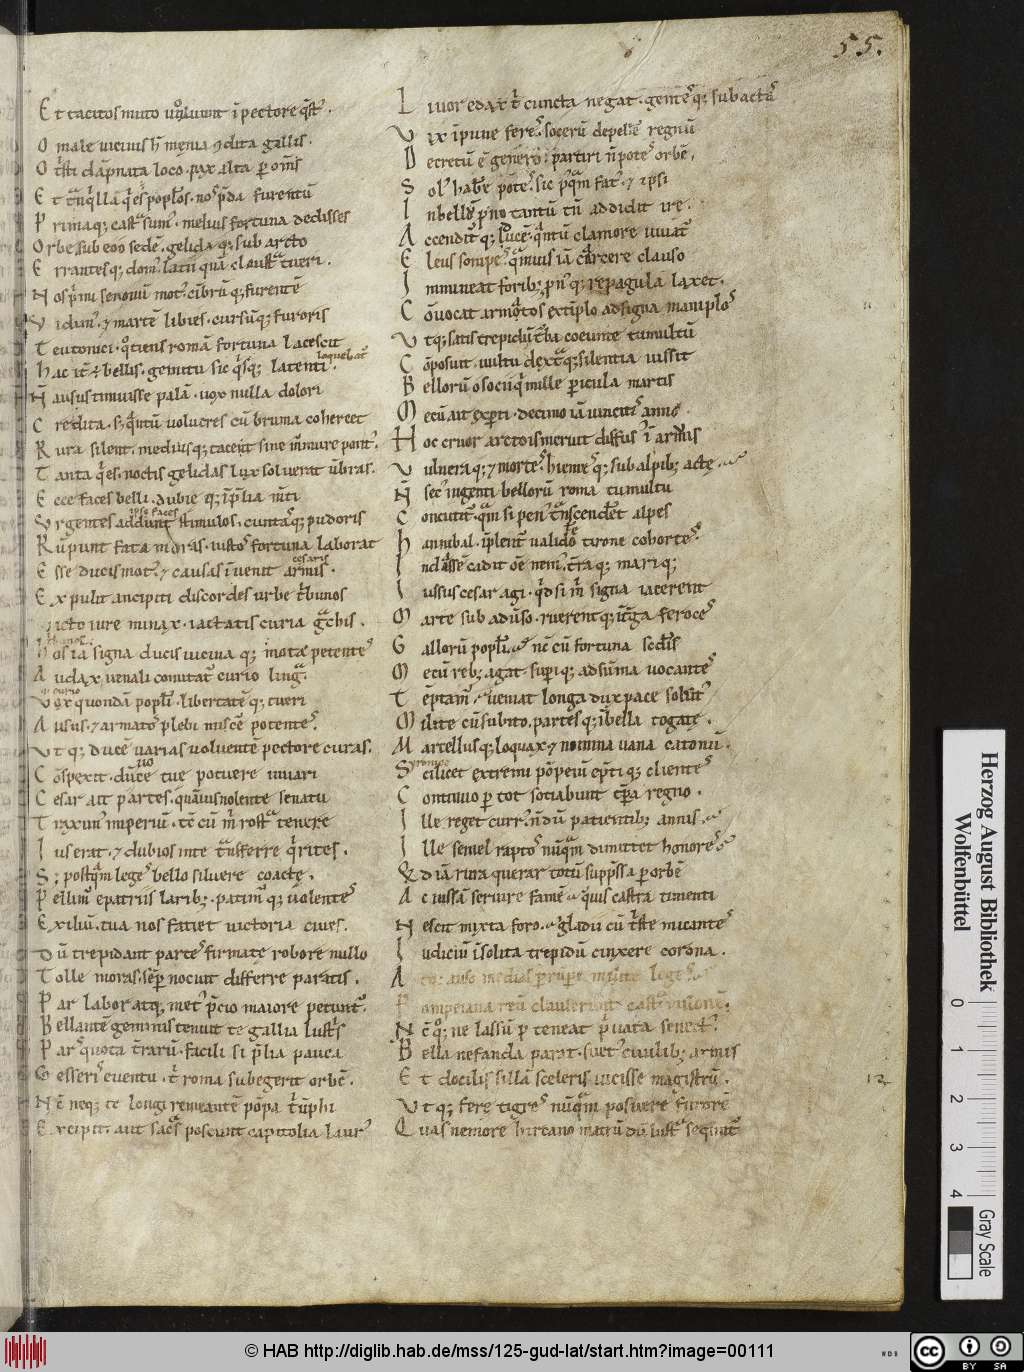 55.
Et tacitos muto uoluunt ī pectore q̄st᷒.
O male uicinis h̄ menia ꝯdita gallis.
O t̄sti dāpnata loco. pax alta ꝑ om̄s
Et t̄nq̄lla q̄es popl̄os. nos p̄da furentū
Primaq; castͣ sum᷒. melius fortuna dedisses
Orbe sub eoo sedē. gelidaq; sub arcto
Errantesq; dom᷒. latii quā claustͣ tueri.
Nos p̄mi senonū mot᷒. cibrūq; furentē
Vidim᷒. ⁊ martē libies. cursūq; furoris
Teutonici. qͦtiens romā fortuna lacescit
hac it᷒ ē bellis. gemitu sic q̄sq; latenti.
loquebat᷒
N̄ ausus timuisse palā. uox nulla dolori
Credita. s; qͣntū uolucres cū bruma cohercet
Rura silent. mediusq; tacent sine m̄mure pont᷒.
Tanta q̄es. noctis gelidas lux soluerat ūbras.
Ecce faces belli. dubieq; ī p̄lia m̄ti
ipse faces
Vrgentes addunt stimulos. cuntasq; pudoris
Rūpunt fata moras. iustos fortuna laborat
cesaris
Esse ducis mot᷒. ⁊ causas īuenit armis.
Expulit ancipiti discordes urbe t̄bunos
icto iure minax. iactatis curia gͣchis.
hos iā signa ducis uicinaq; mota petentes
Audax uenali comitat᷒ curio lingͣ.
curio
Vox quondā popl̄i. libertatēq; tueri
Ausus. ⁊ armatos plebi miscē potentes.
Vtq; ducē uarias uoluentē pectore curas.
Cōspexit. dūce tue potuere iuuari
Cesar ait partes. quāuis nolente senatu
Traxim᷒ imperiū. tē cū m̄ rostͣ tenere
Ius erat. ⁊ dubios in te tͣnsferre q̄rites.
S; postqͣm leges bello siluere coacte.
Pellim᷒ e patriis larib;. patim᷒q; uolentes
Exiliū. tua nos faciet uictoria ciues.
Dū trepidant partes firmate robore nullo
Tolle moras. sēp nocuit differre paratis.
Par labor atq; met᷒ p̄cio maiore petunt᷒.
Bellantē geminis tenuit te gallia lustͥs
Pars quota t̄rarū. facili si p̄lia pauca
Gesseris euentu. t̄ roma subegerit orbē.
Nc̄ neq; te longi remeantē pōpa t̄ūphi
Excipit. aut sacͣs poscunt capitolia laur᷒
Liuor edax t̄ cuncta negat. gentesq; subactas
Vix īpune feres. socerū depellere regnū
Decretū ē genero. partiri n̄ potes orbē.
Sol᷒ habere potes. sic p̄qͣm fat᷒. ⁊ ipsi
In bellū p̄no tantū tn̄ addidit ire.
Accenditq; ducē. qͣntū clamore iuuat᷒
Eleus sompes. qͣmuis iā carcere clauso
Immineat forib; p̄n᷒q; repagula laxet.
Cōuocat armatos extēplo ad signa maniplos
Vtq; satis trepidū t̄ba coeunte tumultū
Cōposuit. uultu dextͣq; silentia iussit
Bellorū o socii q̄ mille ꝑicula martis
Mecū ait exp̄ti. decimo iā uincitis anno.
Hoc cruor arctois meruit diffus᷒ ī aruis
Vulneraq; ⁊ mortes. hiemesq; sub alpib; acte.
N̄ sec᷒ ingenti bellorū roma tumultu
Concutit᷒. qͣm si pen᷒ tͣnscenderet alpes
hannibal. īplent᷒ ualido tirone cohortes.
In classē cadit oē nem᷒. t̄raq; mariq;
Iussus cesar agi. qͥd si m̄ signa iacerent
Marte sub adu᷒so. ruerentq; ī t̄ga feroces
Gallorū popl̄i. nc̄ cū fortuna secūdis
Mecū reb; agat. suꝑiq; ad sūma uocantes
Tēptam᷒. ueniat longa dux pace solut᷒
Milite cū subito. partesq; ī bella togate.
Marcellusq; loquax. ⁊ nomina uana catonū.
Scilicet extremi pōpeiū ep̄tiq; clientes
Continuo ꝑ tot sociabunt tp̄ra regno.
Ille reget curr᷒. n̄ dū patientib; annis.
Ille semel raptos nūqͣm dimittet honores.
Qd iā rura querar totū supp̄ssa ꝑ orbē
Ac iussā seruire famē. qͥs castra timenti
Nescit mixta foro. gladii cū t̄ste micantes
Iudiciū īsolita trepidū cinxere corona.
Atq; auso medias prūpe milite leges
Pompeiana reū clauserunt castͣ milone.
Nc̄ qͦq; ne lassū ꝓ teneat p̄uata senect᷒.
Bella nefanda parat. suet᷒ ciuilib; armis
Et docilis sillā sceleris uicisse magistrū.
Vtq; fere tigres nūqͣm posuere furorē
Quas nemore hircano matrū dū lustͣ sequunt᷒
12
Herzog August Bibliothek
Wolfenbüttel
0 1 2 3 4
Gray Scale
© HAB http://diglib.hab.de/mss/125-gud-lat/start.htm?image=00111
WDB
cc BY SA